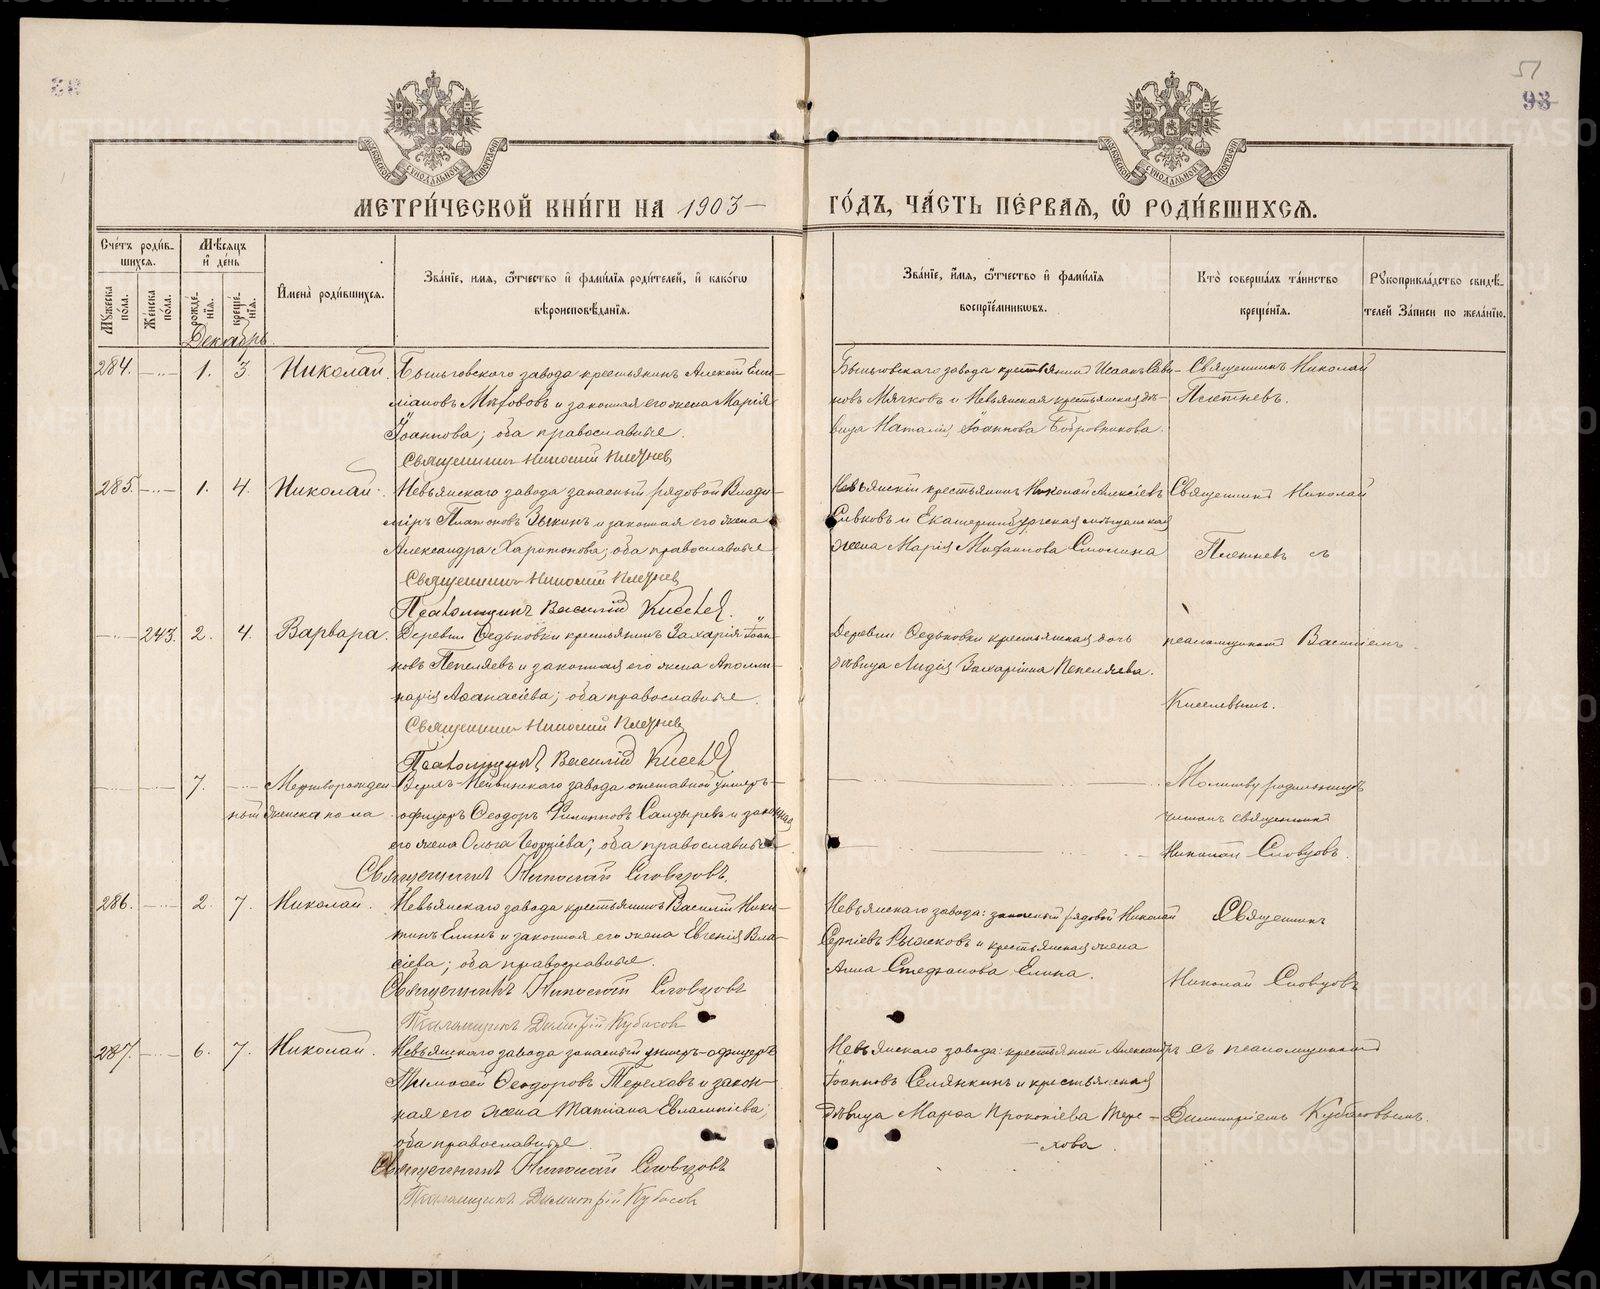 51
98
МЕТРИ́ЧЕСКОЙ КНИ́ГИ НА 1903 — ГО́ДЪ, ЧА́СТЬ ПЕ́РВАЯ, Ѡ РОДИ́ВШИХСЯ.
Сче́тъ роди́в-
шихся.
Му́жеска пола.
Же́нска по́ла.
Мѣсяцъ
и де́нь
рожде́-
нія.
креще́-
нія.
И́мена̀ роди́вшихся.
Зва́нїе, имя, ѻ́тчество и̂ фами́лїя роди́телей, и̂ како́гѡ
вѣроисповѣ́данїя.
Зва́нїе, и̂мя, ѻ́тчество и̂ фами́лїя
воспрїе́мниковъ.
Кто̀ соверша́лъ та́инство
креще́нїя.
Рукоприкла́дство свидѣ́-
телей За́писи по жела́нїю.
Декабрь.
284. —..— 1. 3. Николай.
Быньговского завода крестьянинъ Алексѣй Еми-
ліановъ и законная его жена Марія
Іоаннова; оба православные.
Священникъ Николай Плетнев
Быньговскаго завода крестьянинъ Исаакъ Сави-
новъ Мячковъ и Невьянская крестьянская дѣ-
вица Наталія Іоаннова Бобровникова.
Священникъ Николай
Плетневъ.
285. —..— 1. 4. Николай.
Невьянскаго завода запасный рядовой Влади-
міръ Платоновъ Зыкинъ и законная его жена
Александра Харитонова; оба православные
Священникъ Николай Плетнев
Псаломщикъ Василій Киселев.
Невьянскій крестьянинъ Николай Алексіевъ
Сивковъ и Екатеринбургская мѣщанская
жена Марія Смолина
Священникъ Николай
Плетневъ съ
—..— 243. 2. 4. Варвара.
Деревни Ѳедьковки крестьянинъ Захарія Іоан-
новъ Пепеляевъ и законная его жена Аполли-
нарія Аѳанасіева; оба православные.
Священникъ Николай Плетнев
Псаломщикъ Василій Киселев
Деревни Ѳедьковки крестьянская дочь
дѣвица Лидія Захаріина Пепеляева.
псаломщикомъ Василіемъ
Киселевымъ.
7. Мертворожден-
ный женска пола
Верхъ-Нейвинскаго завода отставной унтеръ-
офицеръ Ѳеодоръ Филипповъ Салдыревъ и законная
его жена Ольга Георгіева; оба православные
Священникъ Николай Словцовъ.
Молитву родильницѣ
читалъ священникъ
Николай Словцовъ.
286. —..— 2. 7. Николай.
Невьянскаго завода крестьянинъ Василій Ники-
тинъ Елинъ и законная его жена Евгенія Вла-
сіева; оба православные.
Священникъ Николай Словцовъ
Псаломщикъ Димитрій Кубасов
Невьянскаго завода: запасный рядовой Николай
Сергіевъ Рыжковъ и крестьянская жена
Анна Стефанова Елина.
Священникъ
Николай Словцовъ
287. —..— 6. 7. Николай.
Невьянскаго завода запасный унтеръ-офицеръ
Тимоѳей Ѳеодоровъ Тереховъ и закон-
ная его жена Татіана Евлампіева;
оба православные.
Священникъ Николай Словцовъ
Псаломщикъ Димитрій Кубасов
Невьянскаго завода: крестьянинъ Александръ
Іоанновъ Селянкинъ и крестьянская
дѣвица Марѳа Прокопіева Тере-
хова.
съ псаломщикомъ
Димитріемъ Кубасовымъ.
METRIKI.GASO-URAL.RU